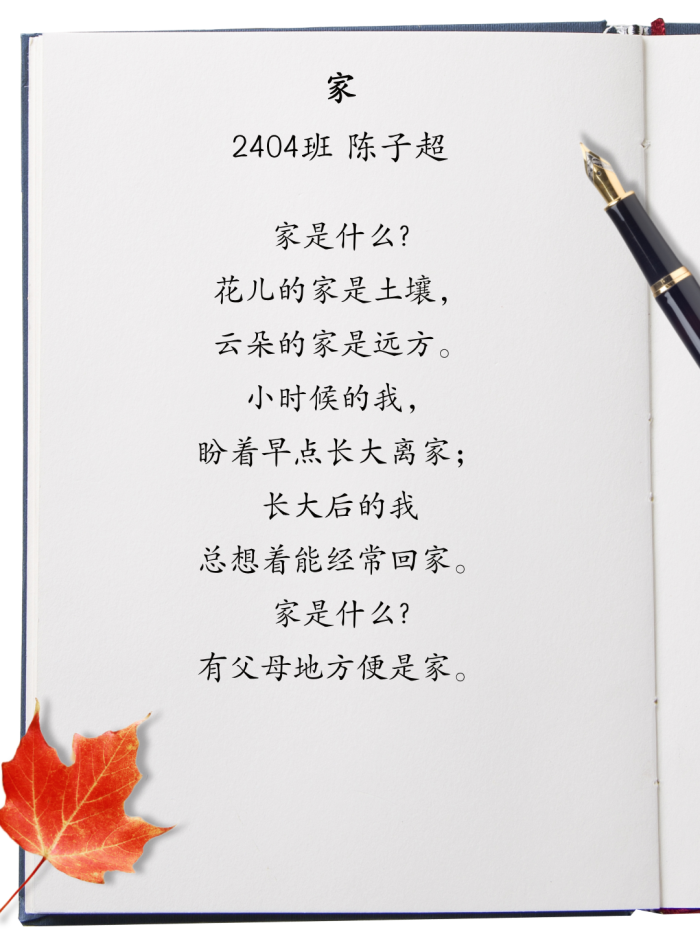 家
2404班 陈子超
家是什么?
花儿的家是土壤，
云朵的家是远方。
小时候的我，
盼着早点长大离家；
长大后的我
总想着能经常回家。
家是什么?
有父母地方便是家。